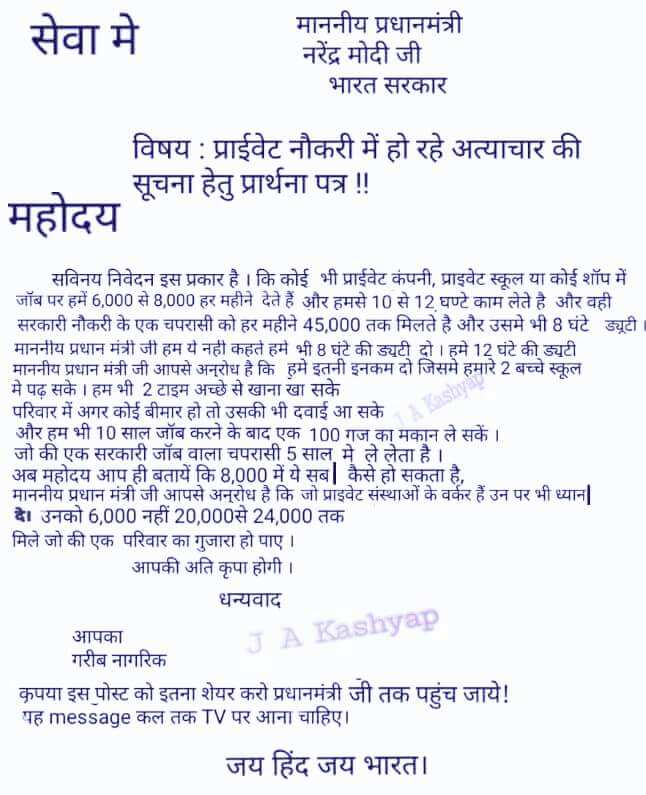 सेवा मे
माननीय प्रधानमंत्री
नरेंद्र मोदी जी
भारत सरकार
विषय : प्राईवेट नौकरी में हो रहे अत्याचार की
सूचना हेतु प्रार्थना पत्र !!
महोदय
सविनय निवेदन इस प्रकार है । कि कोई भी प्राईवेट कंपनी, प्राइवेट स्कूल या कोई शॉप में
जॉब पर हमें 6,000 से 8,000 हर महीने देते हैं और हमसे 10 से 12 घण्टे काम लेते है और वही
सरकारी नौकरी के एक चपरासी को हर महीने 45,000 तक मिलते है और उसमे भी 8 घंटे ड्यूटी ।
माननीय प्रधान मंत्री जी हम ये नही कहते हमे भी 8 घंटे की ड्यटी दो । हमे 12 घंटे की ड्यटी
माननीय प्रधान मंत्री जी आपसे अनुरोध है कि हमे इतनी इनकम दो जिसमे हमारे 2 बच्चे स्कूल
मे पढ़ सके । हम भी 2 टाइम अच्छे से खाना खा सके
परिवार में अगर कोई बीमार हो तो उसकी भी दवाई आ सके
और हम भी 10 साल जॉब करने के बाद एक 100 गज का मकान ले सकें ।
जो की एक सरकारी जॉब वाला चपरासी 5 साल मे ले लेता है ।
अब महोदय आप ही बतायें कि 8,000 में ये सब| कैसे हो सकता है,
माननीय प्रधान मंत्री जी आपसे अनुरोध है कि जो प्राइवेट संस्थाओं के वर्कर हैं उन पर भी ध्यान|
दे। उनको 6,000 नहीं 20,000से 24,000 तक
मिले जो की एक परिवार का गुजारा हो पाए ।
आपकी अति कृपा होगी ।
धन्यवाद
आपका
गरीब नागरिक
J A Kashyap
J A Kashyap
कृपया इस पोस्ट को इतना शेयर करो प्रधानमंत्री जी तक पहुंच जाये!
यह message कल तक TV पर आना चाहिए।
जय हिंद जय भारत।